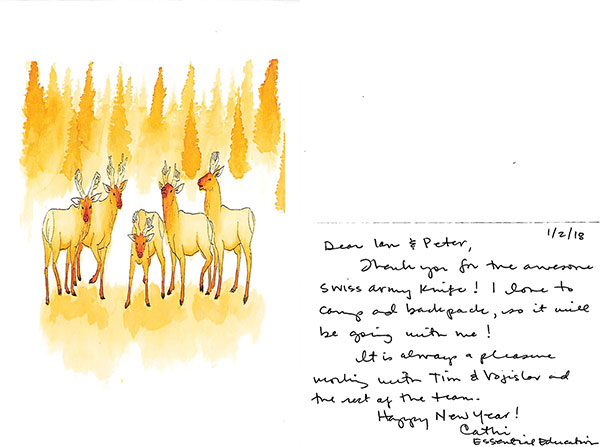 1/2/18
Dear Ian & Peter,
Thank you for the awesome
swiss army knife! I love to
camp and backpack, so it will
be going with me!
It is always a pleasure
working with Tim & Vojislav and
the rest of the team.
Happy New Year!
Cathi
Essential Education